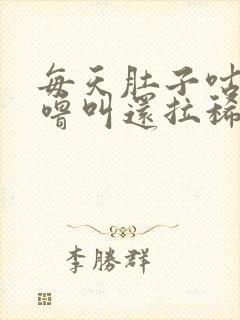 每天肚子咕
噜叫還拉稀
李勝群